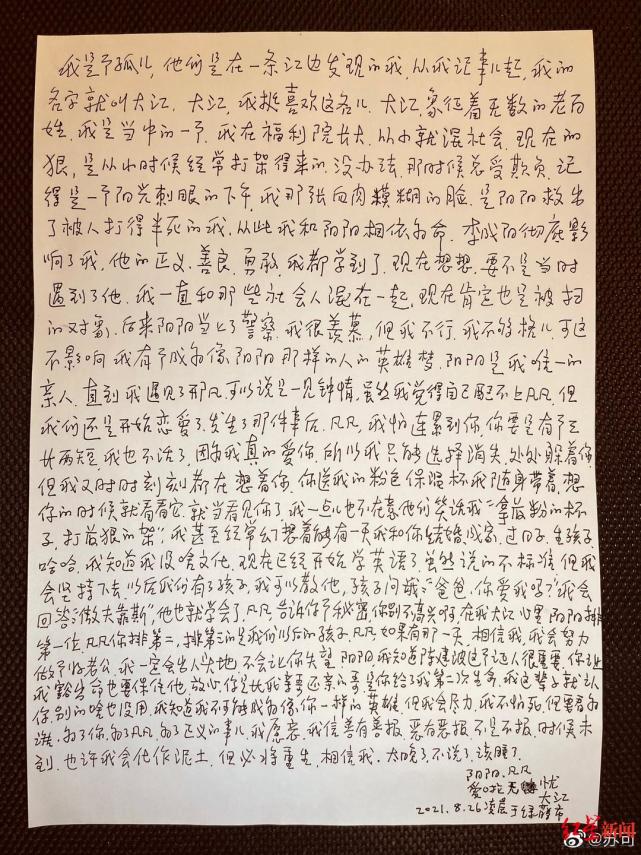 我是个孤儿，他们是在一条江边发现的我，从我记事儿起，我的
名字就叫大江，大江，我挺喜欢这名儿，大江，象征着无数的老百
姓，我是当中的一个，我在福利院长大，从小就混社会，现在的
狠，是从小时候经常打架得来的，没办法，那时候总受欺负，记
得是一个阳光刺眼的下午，我那张血肉模糊的脸，是阳阳救出
了被人打得半死的我，从此我和阳阳相依为命，李成阳彻底影
响了我，他的正义、善良、勇敢，我都学到了，现在想想，要不是当时
遇到了他，我一直和那些社会人混在一起，现在肯定也是被扫
的对象，后来阳阳当上了警察，我很羡慕，但我不行，我不够格儿，可这
不影响我有个成为像阳阳那样的人的英雄梦，阳阳是我唯一的
亲人，直到我遇见了邢凡，可以说是一见钟情，虽然我觉得自己配不上凡凡，但
我们还是开始恋爱了，发生了那件事后，凡凡，我怕连累到你，你要是有个三
长两短，我也不活了，因为我真的爱你，所以我只能选择消失，处处躲着你，
但我又时时刻刻都在想着你，你送我的粉色保温杯我随身带着，想
你的时候就看看它，就当看见你了，我一点儿也不在意他们笑话我“拿最粉的杯
子，打最狠的架”我甚至经常幻想着能有一天我和你结婚成家，过日子，生孩子，
哈哈，我知道我没啥文化，现在已经开始学英语了，虽然说的不标准，但我
会坚持下去，以后我们有了孩子，我可以教他，孩子问我：“爸爸，你爱我吗？”我会
回答：“做夫靠斯”他也就学会了，凡凡，告诉你个秘密，你别不高兴啊，在我大江心里，阳阳排
第一位，凡凡你排第二，排第三的是我们以后的孩子，凡凡，如果有那一天，相信我，我会努力
做个好老公，我一定会出人头地，不会让你失望，阳阳，我知道陈建波这个证人很重要，你让
我豁出命也要保住他，放心，你是比我亲哥还亲的哥，是你给了我第二次生命，我这辈子就认
你，别的啥也没用，我知道我不可能成为像你一样的英雄，但我会尽力，我不怕死，但要看为
谁，为了你，为了凡凡，为了正义的事儿，我愿意，我信善有善报，恶有恶报，不是不报，时候未
到，也许我会化作泥土，但必将重生，相信我，太晚了，不说了，该睡了，
阳阳，凡凡
爱江无忧
大江
2021.8.26凌晨于绿藤市
红星新闻
@苏可